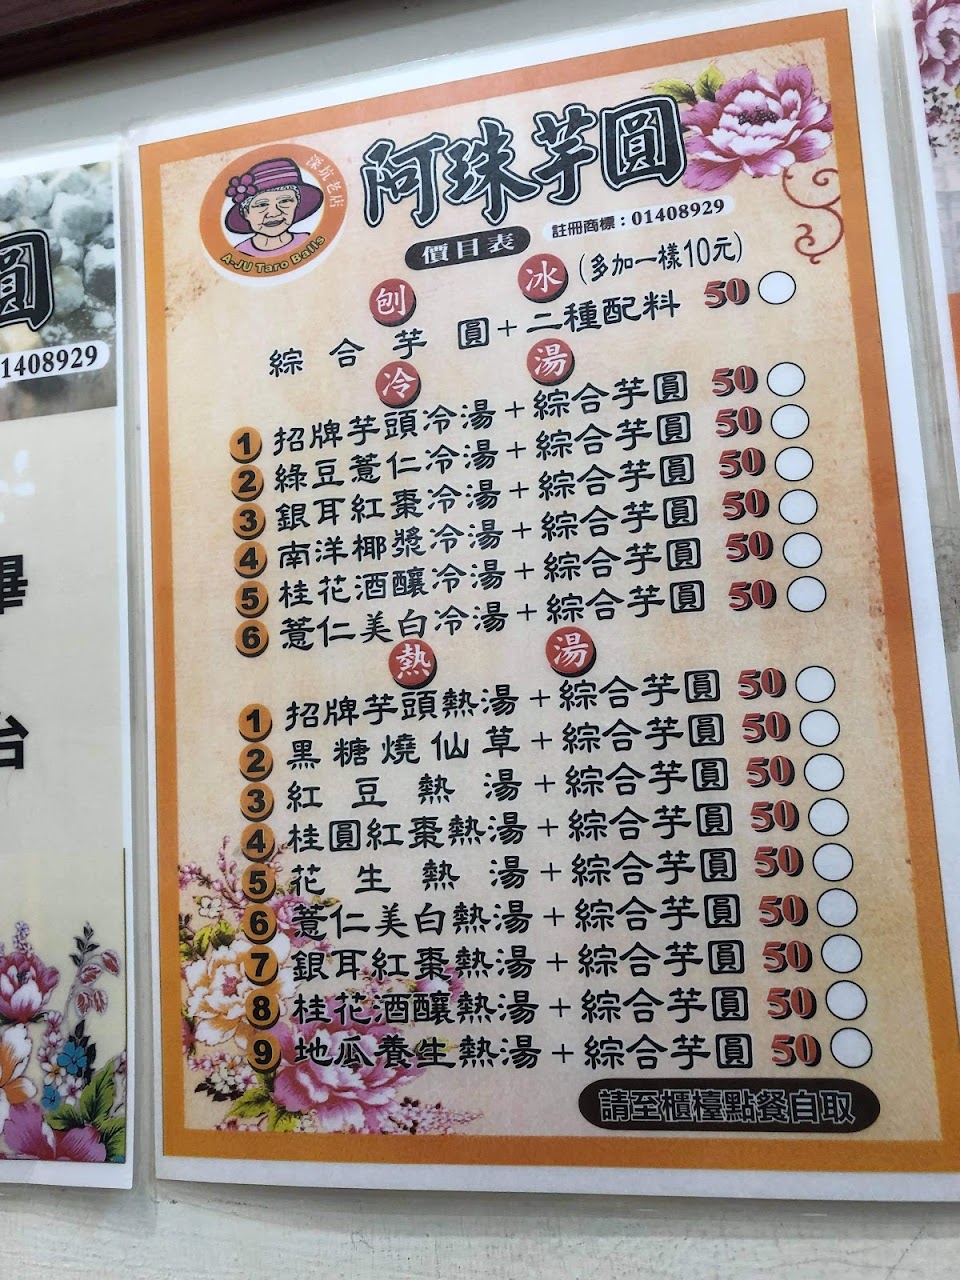 阿珠芋圓
深坑老店
A-JU Taro Balls
價目表
註冊商標：01408929
刨冰(多加一樣10元)
綜合芋圓+二種配料 50
冷湯
1 招牌芋頭冷湯+綜合芋圓 50
2 綠豆薏仁冷湯+綜合芋圓 50
3 銀耳紅棗冷湯+綜合芋圓 50
4 南洋椰漿冷湯+綜合芋圓 50
5 桂花酒釀冷湯+綜合芋圓 50
6 薏仁美白冷湯+綜合芋圓 50
熱湯
1 招牌芋頭熱湯+綜合芋圓 50
2 黑糖燒仙草+綜合芋圓 50
3 紅豆熱湯+綜合芋圓 50
4 桂圓紅棗熱湯+綜合芋圓 50
5 花生熱湯+綜合芋圓 50
6 薏仁美白熱湯+綜合芋圓 50
7 銀耳紅棗熱湯+綜合芋圓 50
8 桂花酒釀熱湯+綜合芋圓 50
9 地瓜養生熱湯+綜合芋圓 50
請至櫃檯點餐自取
圓
1408929
台